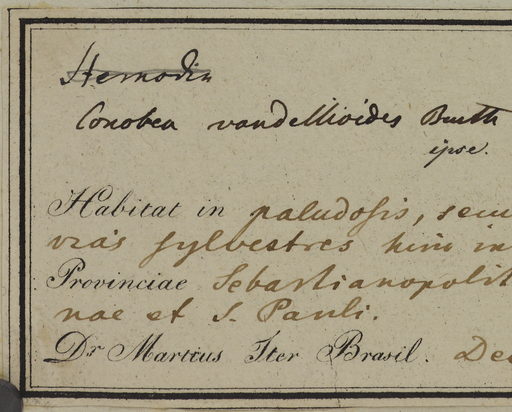 Hemodin
Conobea vandellioides Benth
ipse.
Habitat in paludosis, sem
vias sylvestres hinc in
Provinciae Sebastianopolit
nae et S. Pauli.
Dr Martius Iter Brasil. Dec